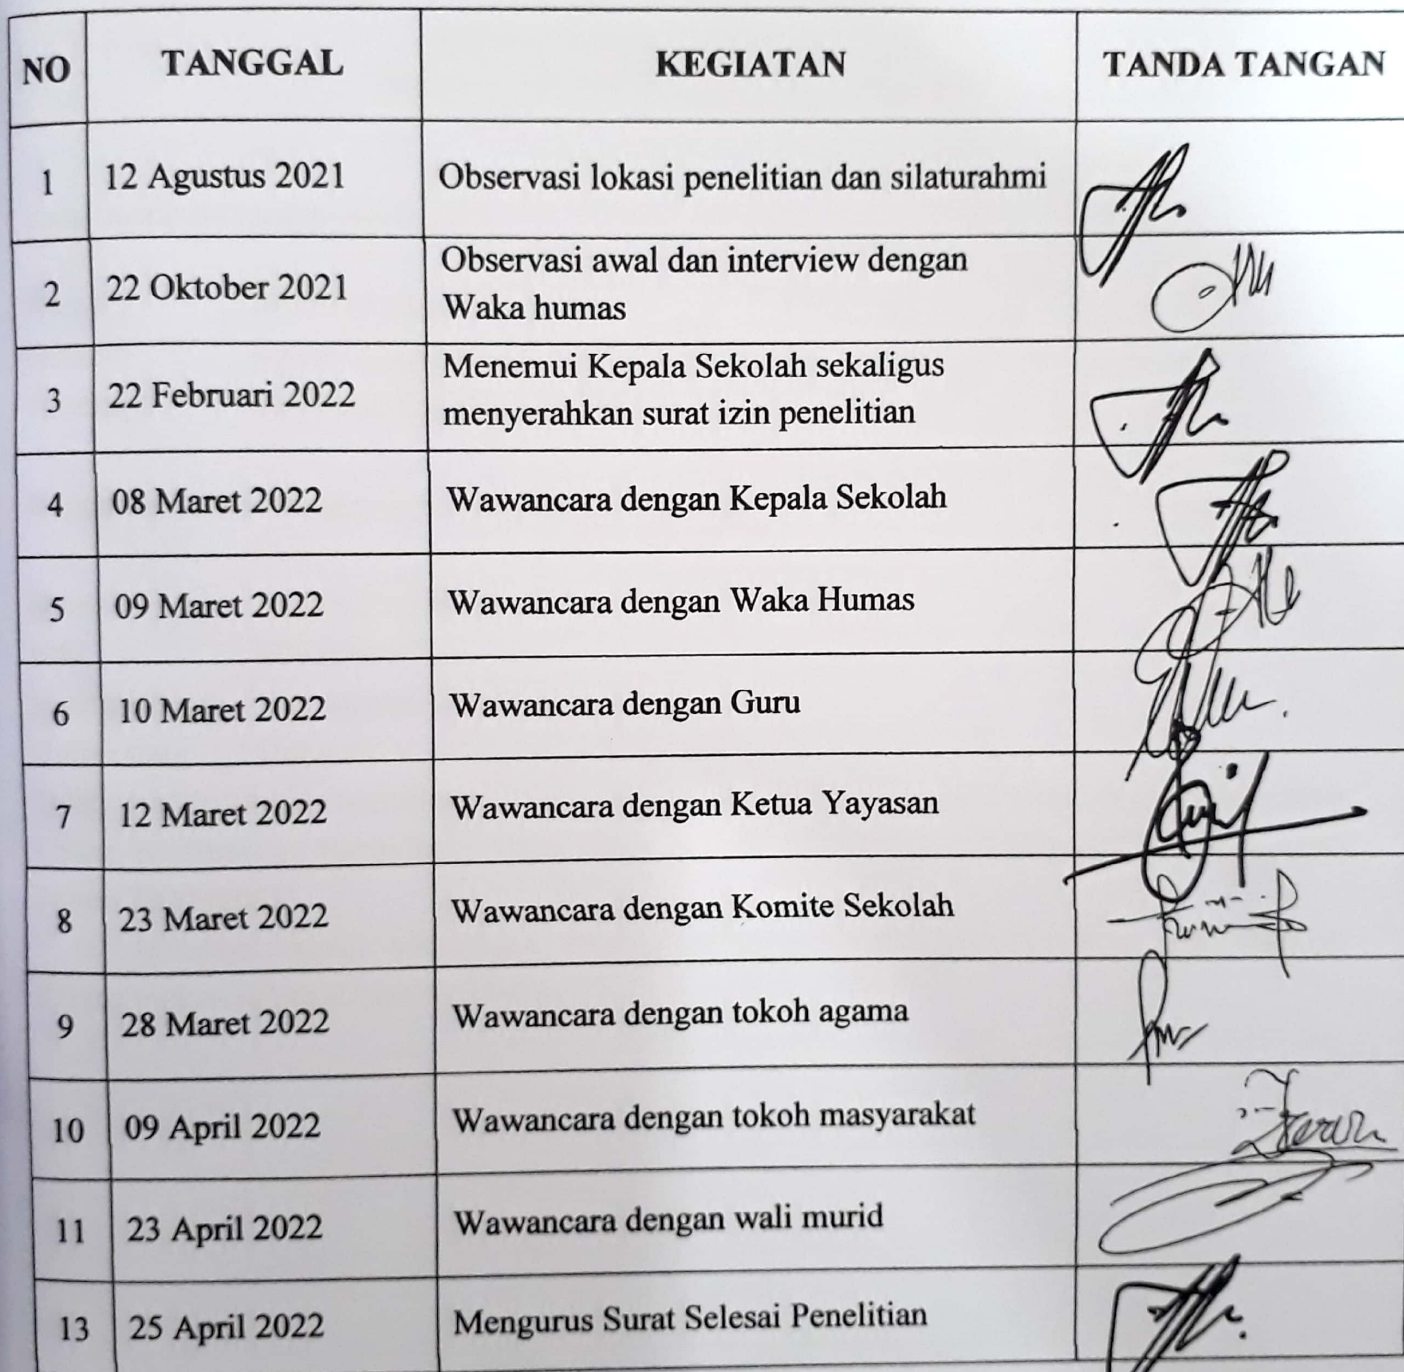 NO TANGGAL KEGIATAN TANDA TANGAN
1 12 Agustus 2021 Observasi lokasi penelitian dan silaturahmi
2 22 Oktober 2021 Observasi awal dan interview dengan
Waka humas
3 22 Februari 2022 Menemui Kepala Sekolah sekaligus
menyerahkan surat izin penelitian
4 08 Maret 2022 Wawancara dengan Kepala Sekolah
5 09 Maret 2022 Wawancara dengan Waka Humas
6 10 Maret 2022 Wawancara dengan Guru
7 12 Maret 2022 Wawancara dengan Ketua Yayasan
8 23 Maret 2022 Wawancara dengan Komite Sekolah
9 28 Maret 2022 Wawancara dengan tokoh agama
10 09 April 2022 Wawancara dengan tokoh masyarakat
11 23 April 2022 Wawancara dengan wali murid
13 25 April 2022 Mengurus Surat Selesai Penelitian